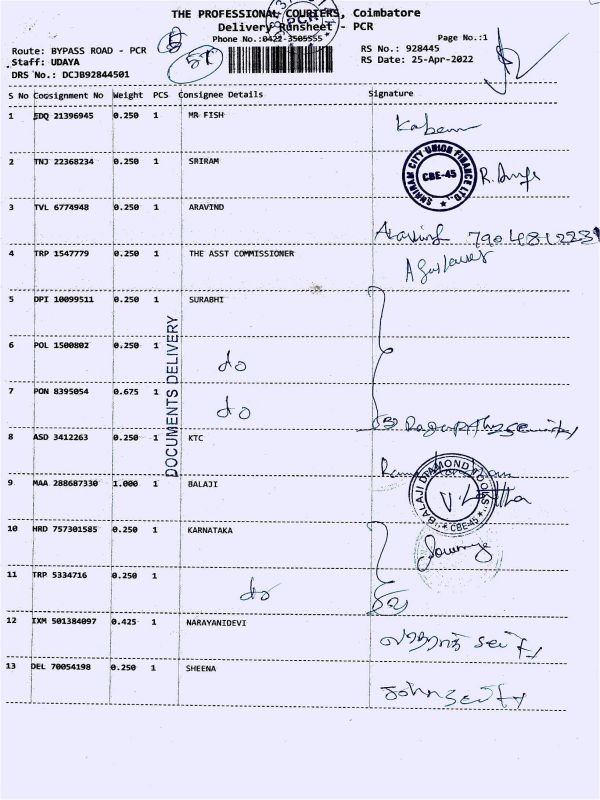 THE PROFESSIONAL COURIERS, Coimbatore
Delivery Runsheet - PCR
Phone No.:0422-3505555
Page No.:1
Route: BYPASS ROAD - PCR
RS No.: 928445
Staff: UDAYA
RS Date: 25-Apr-2022
DRS No.: DCJB92844501
S No Consignment No Weight PCS Consignee Details Signature
1 EDQ 21396945 0.250 1 MR FISH
2 TNJ 22368234 0.250 1 SRIRAM
SHRIRAM CITY UNION FINANCE LTD.
CBE-45
3 TVL 6774948 0.250 1 ARAVIND
Aravind 7904812231
4 TRP 1547779 0.250 1 THE ASST COMMISSIONER
5 DPI 10099511 0.250 1 SURABHI
6 POL 1500802 0.250 1 do
7 PON 8395054 0.675 1 do
DOCUMENTS DELIVERY
8 ASD 3412263 0.250 1 KTC
9 MAA 288687330 1.000 1 BALAJI
BALAJI DIAMOND TOOLS
CBE-45
10 HRD 757301585 0.250 1 KARNATAKA
Sowmya
11 TRP 5334716 0.250 1 do
12 IXM 501384097 0.425 1 NARAYANIDEVI
13 DEL 70054198 0.250 1 SHEENA